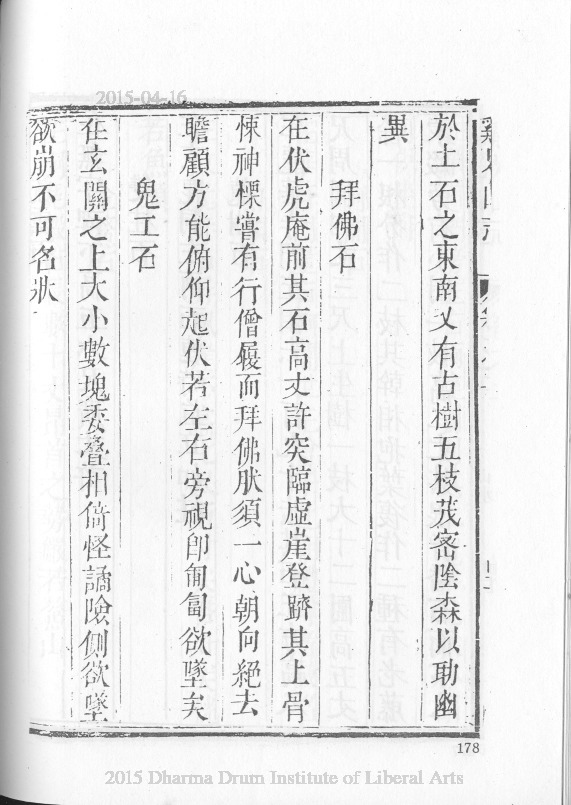 2015-04-16
於土石之東南乂有古樹五枝茂密陰森以助幽
異
拜佛石
在伏虎庵前其石高丈許突臨虛崖登躋其上骨
悚神慄嘗有行僧履而拜佛肰須一心朝向絕去
瞻顧方能俯仰起伏若左右旁視卽匍匐欲墜矣
鬼工石
在玄關之上大小數塊委疊相倚怪譎險側欲墜
欲崩不可名狀
178
2015 Dharma Drum Institute of Liberal Arts